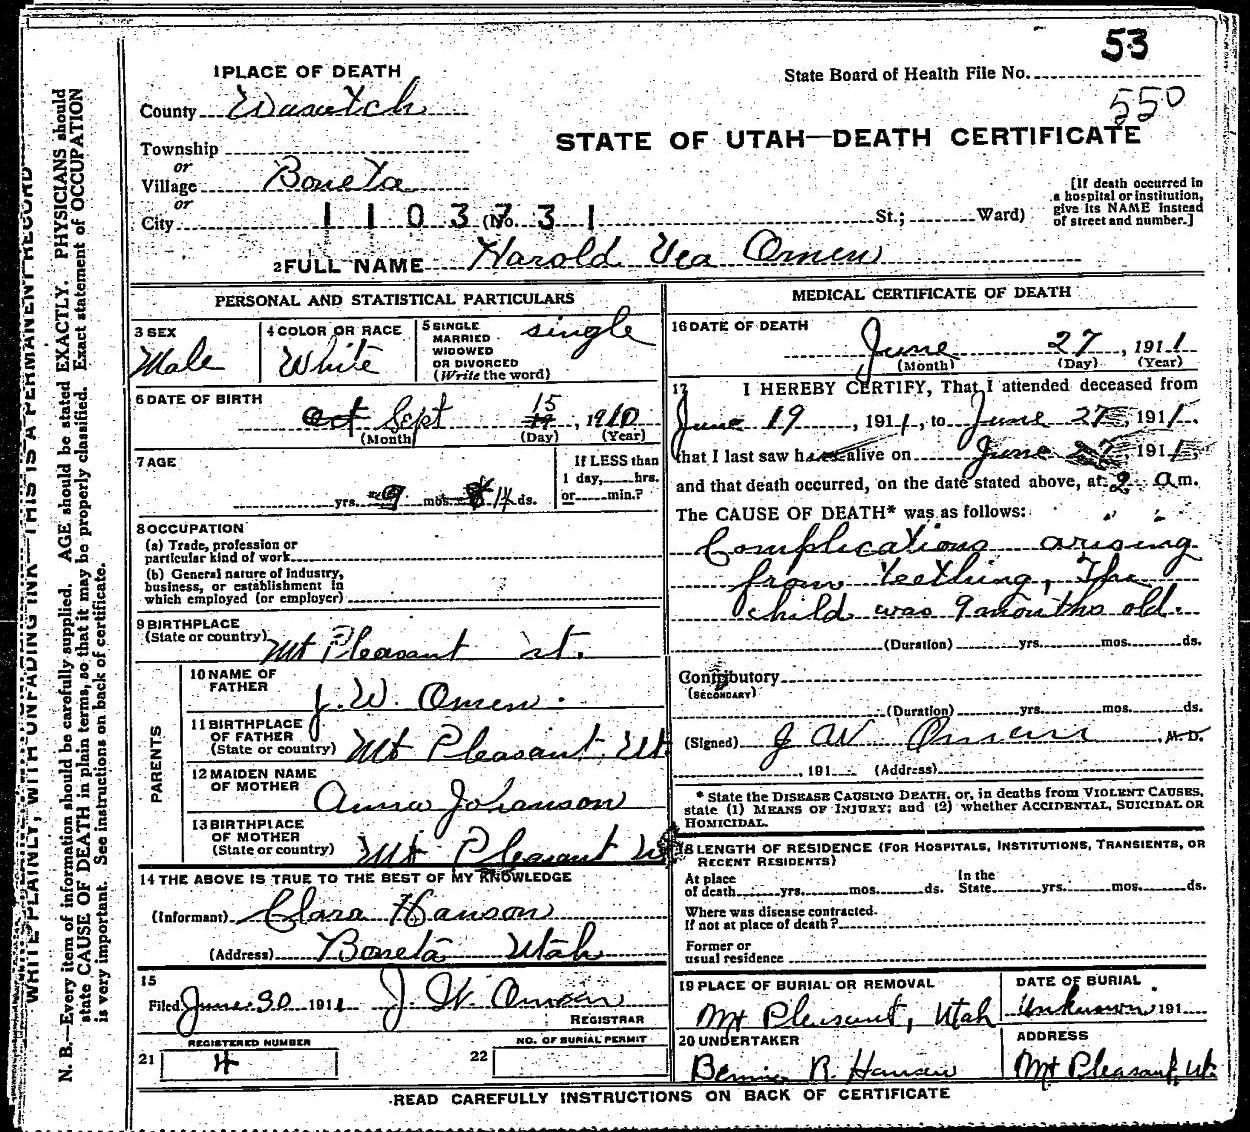 53
1 PLACE OF DEATH
State Board of Health File No.
550
County Wasatch
STATE OF UTAH—DEATH CERTIFICATE
Township
or
Village Boneta
or
City 1103731 (No. St.; Ward)
[If death occurred in
a hospital or institution,
give its NAME instead
of street and number.]
2 FULL NAME Harold Vea Omen
PERSONAL AND STATISTICAL PARTICULARS
3 SEX
Male
4 COLOR OR RACE
White
5 SINGLE
MARRIED
WIDOWED
OR DIVORCED
(Write the word)
single
6 DATE OF BIRTH
Oct Sept 15 19, 1910
(Month) (Day) (Year)
7 AGE
yrs. 9 mos. 14 ds.
If LESS than
1 day, hrs.
or min.?
8 OCCUPATION
(a) Trade, profession or
particular kind of work
(b) General nature of industry,
business, or establishment in
which employed (or employer)
9 BIRTHPLACE
(State or country) Mt Pleasant ut.
PARENTS
10 NAME OF
FATHER
J. W. Omen.
11 BIRTHPLACE
OF FATHER
(State or country) Mt Pleasant Ut
12 MAIDEN NAME
OF MOTHER
Anna Johanson
13 BIRTHPLACE
OF MOTHER
(State or country) Mt Pleasant Ut
14 THE ABOVE IS TRUE TO THE BEST OF MY KNOWLEDGE
(Informant) Clara Hanson
(Address) Boneta Utah
15
Filed June 30 1911 J. W. Omen
REGISTRAR
REGISTERED NUMBER
21 4
NO. OF BURIAL PERMIT
22
MEDICAL CERTIFICATE OF DEATH
16 DATE OF DEATH
June 27, 1911
(Month) (Day) (Year)
17 I HEREBY CERTIFY, That I attended deceased from
June 19, 1911, to June 27, 1911.
that I last saw h alive on June 27, 1911,
and that death occurred, on the date stated above, at 2 a m.
The CAUSE OF DEATH* was as follows:
Complications arising
from teething, The
child was 9 months old.
(Duration) yrs. mos. ds.
Contributory
(SECONDARY)
(Duration) yrs. mos. ds.
(Signed) J W Omen, M. D.
, 191 (Address)
* State the DISEASE CAUSING DEATH, or, in deaths from VIOLENT CAUSES,
state (1) MEANS OF INJURY; and (2) whether ACCIDENTAL, SUICIDAL OR
HOMICIDAL.
18 LENGTH OF RESIDENCE (FOR HOSPITALS, INSTITUTIONS, TRANSIENTS, OR
RECENT RESIDENTS)
At place
of death yrs. mos. ds.
In the
State yrs. mos. ds.
Where was disease contracted
If not at place of death?
Former or
usual residence
19 PLACE OF BURIAL OR REMOVAL
Mt Pleasant, Utah
DATE OF BURIAL
Unknown 191
20 UNDERTAKER
R. Hansen
ADDRESS
Mt Pleasant, Ut.
READ CAREFULLY INSTRUCTIONS ON BACK OF CERTIFICATE
WRITE PLAINLY, WITH UNFADING INK—THIS IS A PERMANENT RECORD
N. B.—Every item of information should be carefully supplied. AGE should be stated EXACTLY. PHYSICIANS should
state CAUSE OF DEATH in plain terms, so that it may be properly classified. Exact statement of OCCUPATION
is very important. See instructions on back of certificate.